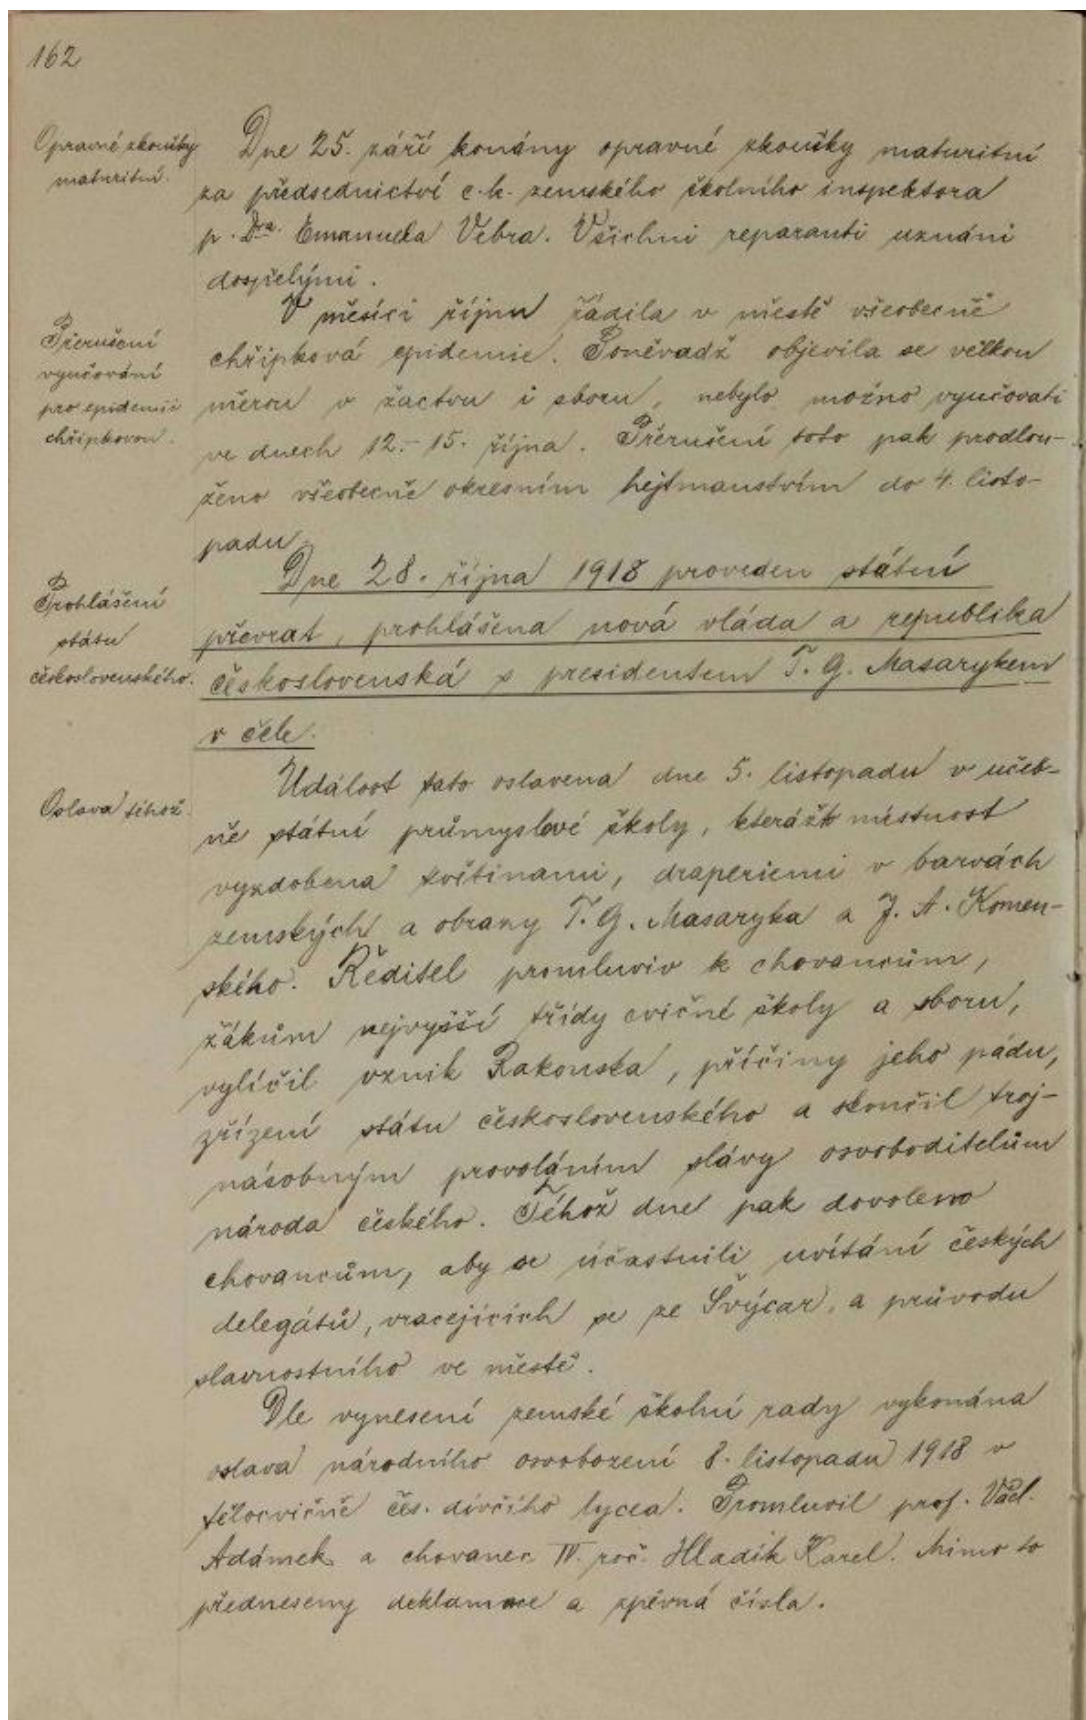 162
Opravné zkoušky
maturitní.
Dne 25. září konány opravné zkoušky maturitní
za předsednictví c. k. zemského školního inspektora
p. Dra. Emanuela Vebra. Všichni reparanti uznáni
dospělými.
Přerušení
vyučování
pro epidemii
chřipkovou.
V měsíci říjnu řádila v městě všeobecně
chřipková epidemie. Poněvadž objevila se velkou
měrou v žactvu i sboru, nebylo možno vyučovati
ve dnech 12.–15. října. Přerušení toto pak prodlou-
ženo všeobecně okresním hejtmanstvím do 4. listo-
padu.
Prohlášení
státu
československého.
Dne 28. října 1918 proveden státní
převrat, prohlášena nová vláda a republika
československá s presidentem T. G. Masarykem
v čele.
Oslava téhož.
Událost tato oslavena dne 5. listopadu v učeb-
ně státní průmyslové školy, kterážto místnost
vyzdobena květinami, draperiemi v barvách
zemských a obrazy T. G. Masaryka a J. A. Komen-
ského. Ředitel promluviv k chovancům,
žákům nejvyšší třídy cvičné školy a sboru,
vylíčil vznik Rakouska, příčiny jeho pádu,
zřízení státu československého a skončil troj-
násobným provoláním slávy osvoboditelům
národa českého. Téhož dne pak dovoleno
chovancům, aby se účastnili uvítání českých
delegátů, vracejících se ze Švýcar, a průvodu
slavnostního ve městě.
Dle vynesení zemské školní rady vykonána
oslava národního osvobození 8. listopadu 1918 v
tělocvičně čes. dívčího lycea. Promluvil prof. Václ.
Adámek a chovanec IV. roč. Hladík Karel. Mimo to
předneseny deklamace a zpěvná čísla.